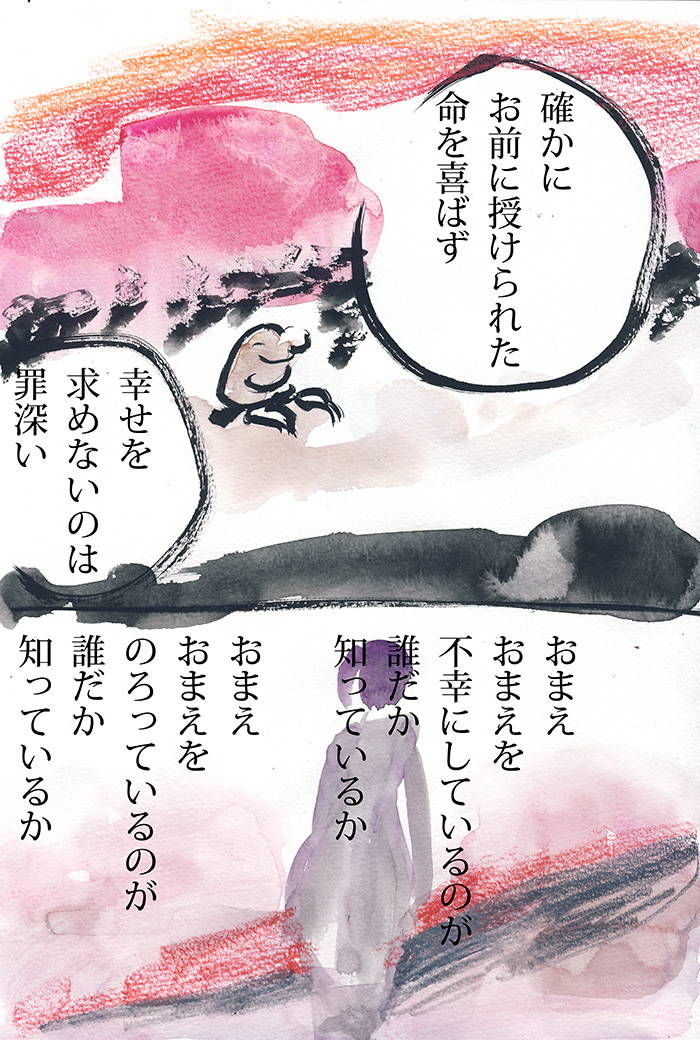 確かに
お前に授けられた
命を喜ばず
幸せを
求めないのは
罪深い
おまえ
おまえを
不幸にしているのが
誰だか
知っているか
おまえ
おまえを
のろっているのが
誰だか
知っているか